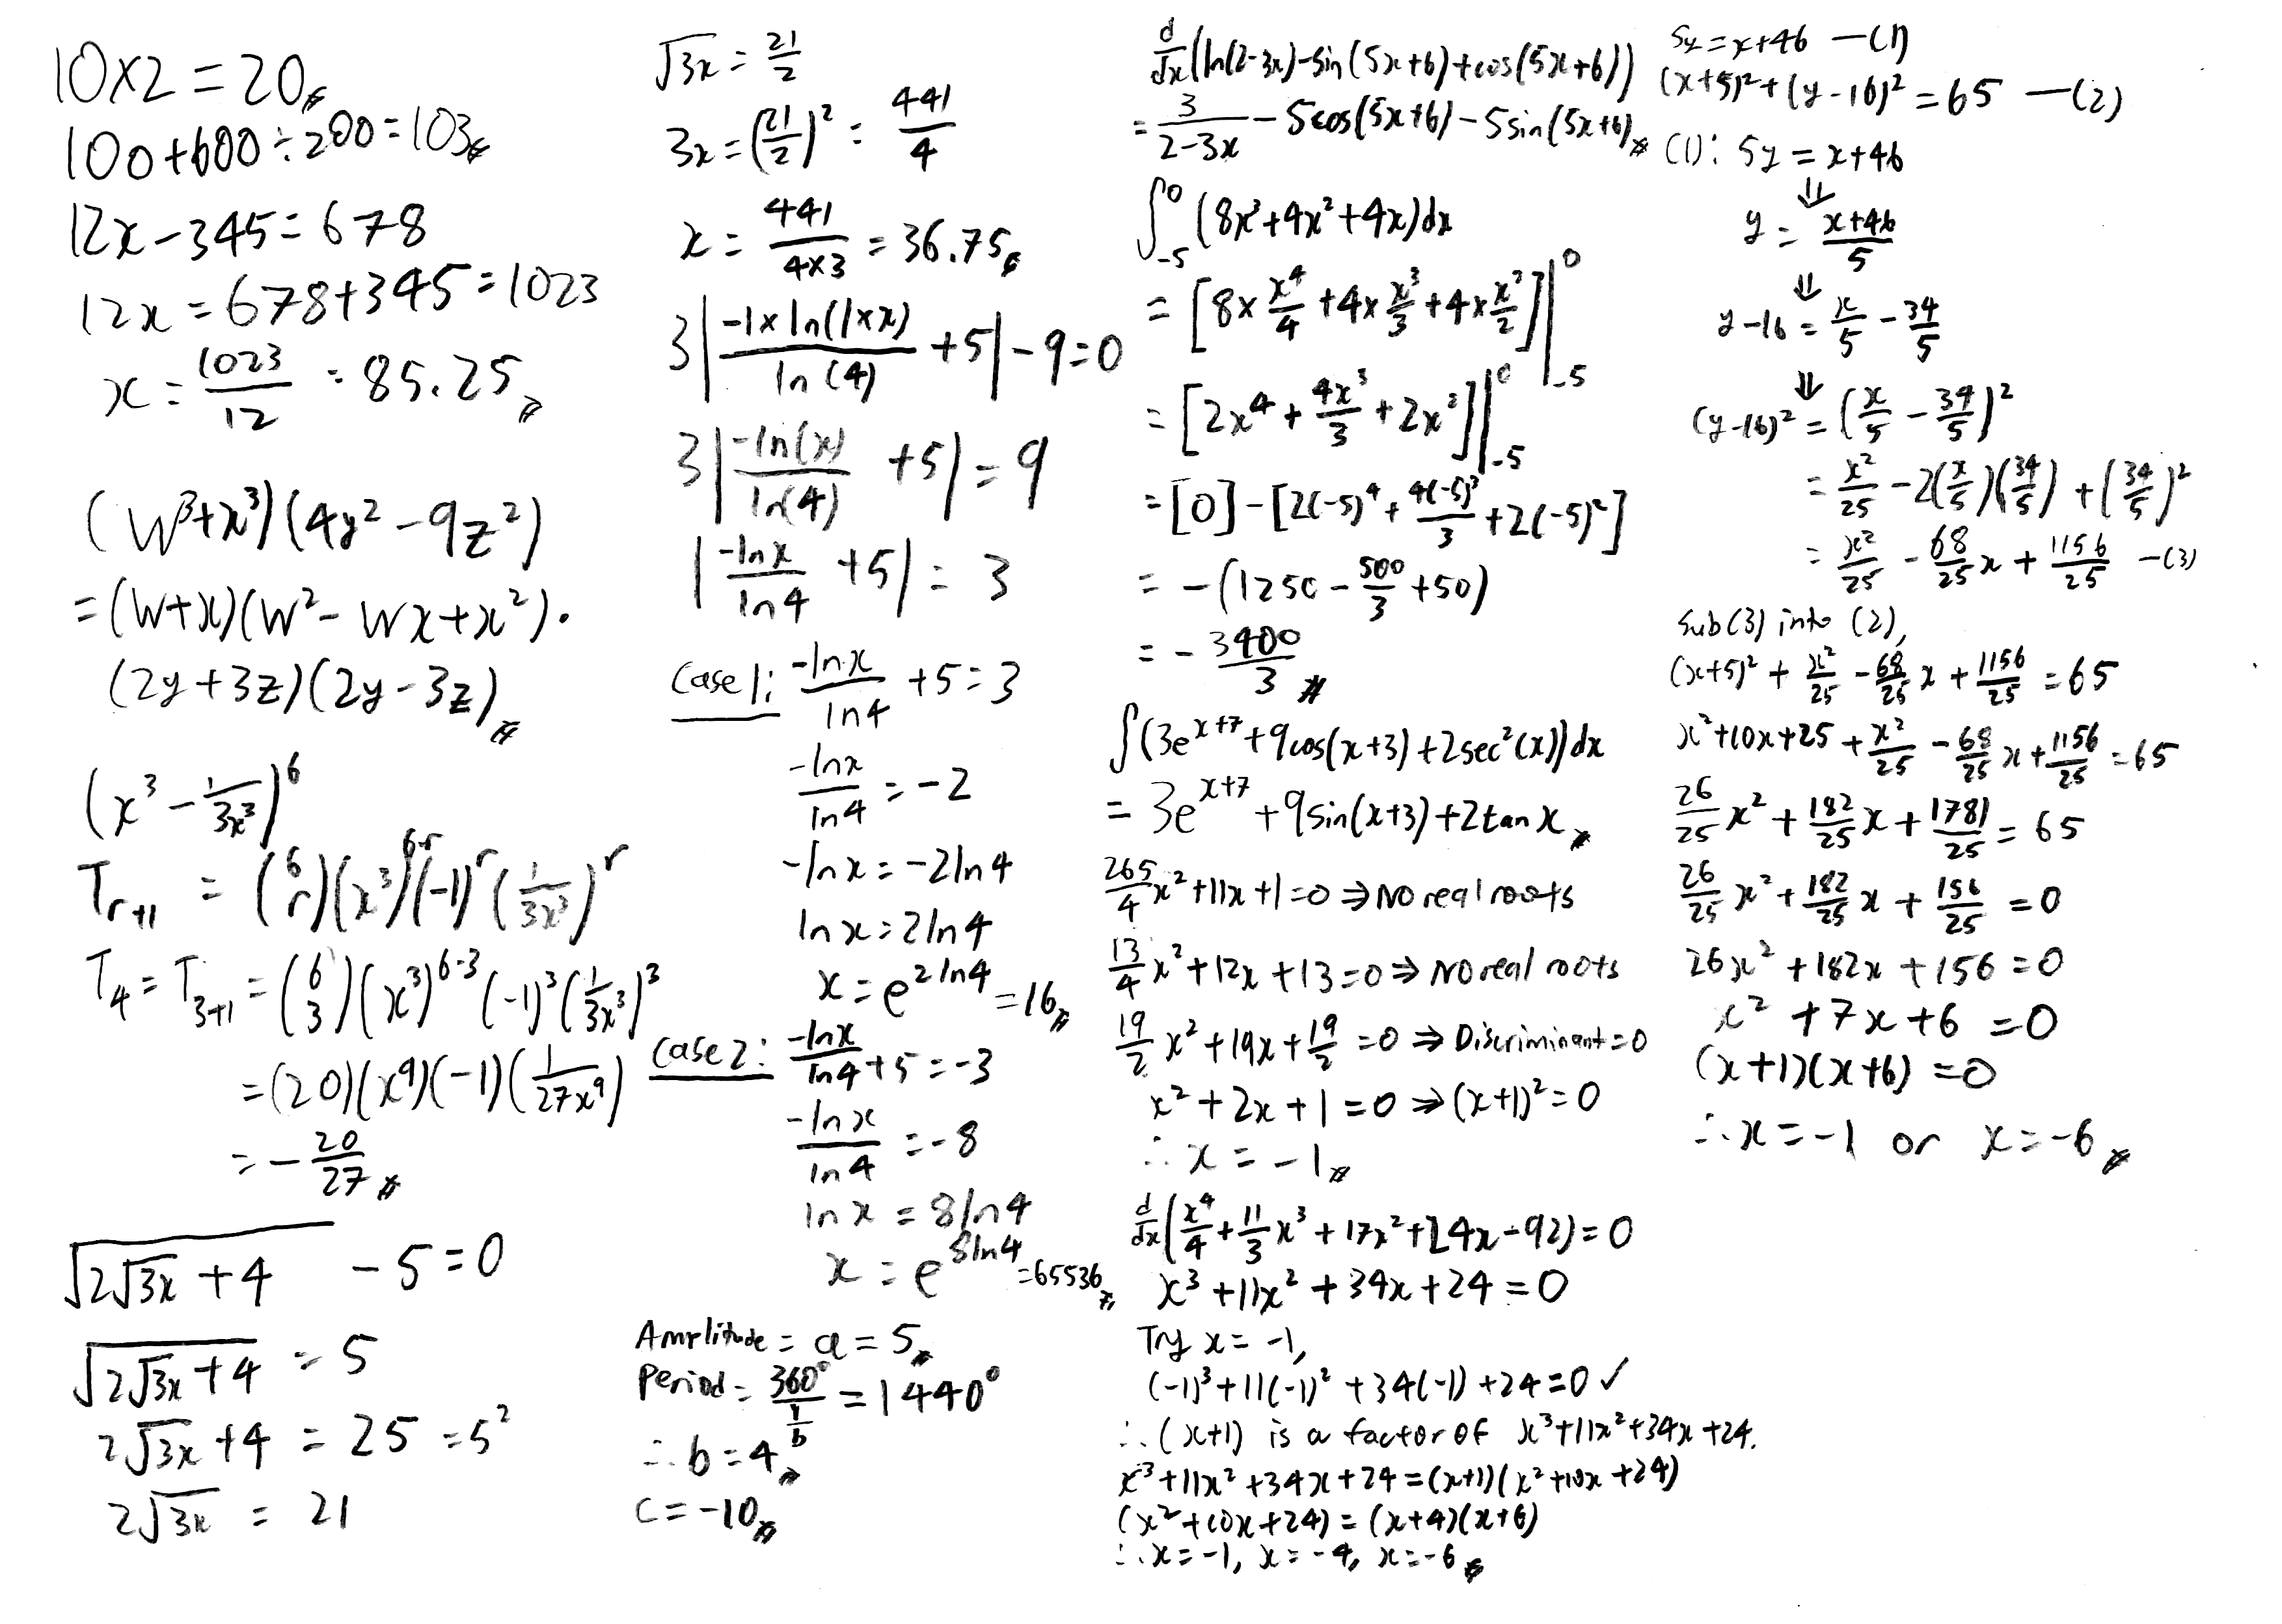 10×2=20
100+600÷200=103
12x-345=678
12x=678+345=1023
x=1023/12=85.25
(w³+x³)(4y²-9z²)
=(w+x)(w²-wx+x²)·
(2y+3z)(2y-3z)
(x³-1/3x³)⁶
T_{r+1} = (6 r)(x³)^{6-r}(-1)^r(1/3x³)^r
T₄=T_{3+1}=(6 3)(x³)^{6-3}(-1)³(1/3x³)³
=(20)(x⁹)(-1)(1/27x⁹)
=-20/27
√(2√3x+4) -5=0
√(2√3x+4) =5
2√3x+4 = 25 =5²
2√3x = 21
√3x = 21/2
3x=(21/2)²=441/4
x=441/(4×3)=36.75
3|(-1×ln(1×x))/ln(4)+5|-9=0
3|-ln(x)/ln(4)+5|=9
|-lnx/ln4+5|=3
Case 1: -lnx/ln4+5=3
-lnx/ln4=-2
-lnx=-2ln4
lnx=2ln4
x=e^{2ln4}=16
Case 2: -lnx/ln4+5=-3
-lnx/ln4=-8
lnx=8ln4
x=e^{8ln4}=65536
Amplitude=a=5
Period=360°/(1/b)=1440°
∴b=4
c=-10
d/dx(ln(2-3x)-sin(5x+6)+cos(5x+6))
=3/(2-3x)-5cos(5x+6)-5sin(5x+6)
∫_{-5}^{0}(8x³+4x²+4x)dx
=[8×x⁴/4+4×x³/3+4×x²/2]|_{-5}^{0}
=[2x⁴+4x³/3+2x²]|_{-5}^{0}
=[0]-[2(-5)⁴+4(-5)³/3+2(-5)²]
=-(1250-500/3+50)
=-3400/3
∫(3e^{x+7}+9cos(x+3)+2sec²(x))dx
=3e^{x+7}+9sin(x+3)+2tanx
265/4x²+11x+1=0⇒No real roots
13/4x²+12x+13=0⇒No real roots
19/2x²+19x+19/2=0⇒Discriminant=0
x²+2x+1=0⇒(x+1)²=0
∴x=-1
d/dx(x⁴/4+11/3x³+17x²+24x-92)=0
x³+11x²+34x+24=0
Try x=-1,
(-1)³+11(-1)²+34(-1)+24=0✓
∴(x+1) is a factor of x³+11x²+34x+24.
x³+11x²+34x+24=(x+1)(x²+10x+24)
(x²+10x+24)=(x+4)(x+6)
∴x=-1, x=-4, x=-6
5y=x+46 —(1)
(x+5)²+(y-16)²=65 —(2)
(1): 5y=x+46
⇓
y=(x+46)/5
⇓
y-16=x/5-34/5
⇓
(y-16)²=(x/5-34/5)²
=x²/25-2(x/5)(34/5)+(34/5)²
=x²/25-68/25x+1156/25 —(3)
sub(3) into (2),
(x+5)²+x²/25-68/25x+1156/25=65
x²+10x+25+x²/25-68/25x+1156/25=65
26/25x²+182/25x+1781/25=65
26/25x²+182/25x+156/25=0
26x²+182x+156=0
x²+7x+6=0
(x+1)(x+6)=0
∴x=-1 or x=-6